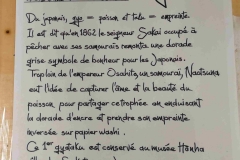 Du japonais, gyo = poisson et taku = empreinte.
Il est dit qu'en 1862 le seigneur Sakai occupé à
pêcher avec ses samouraïs remonta une dorade
grise symbole de bonheur pour les Japonais.
Trop loin de l'empereur Osahito, un samouraï, Naatsuma
eut l'idée de capturer l'âme et la beauté du
poisson pour partager ce trophée en enduisant
la dorade d'encre et prendre son empreinte
inversée sur papier washi.
Ce 1er gyotaku est conservé au musée Homma